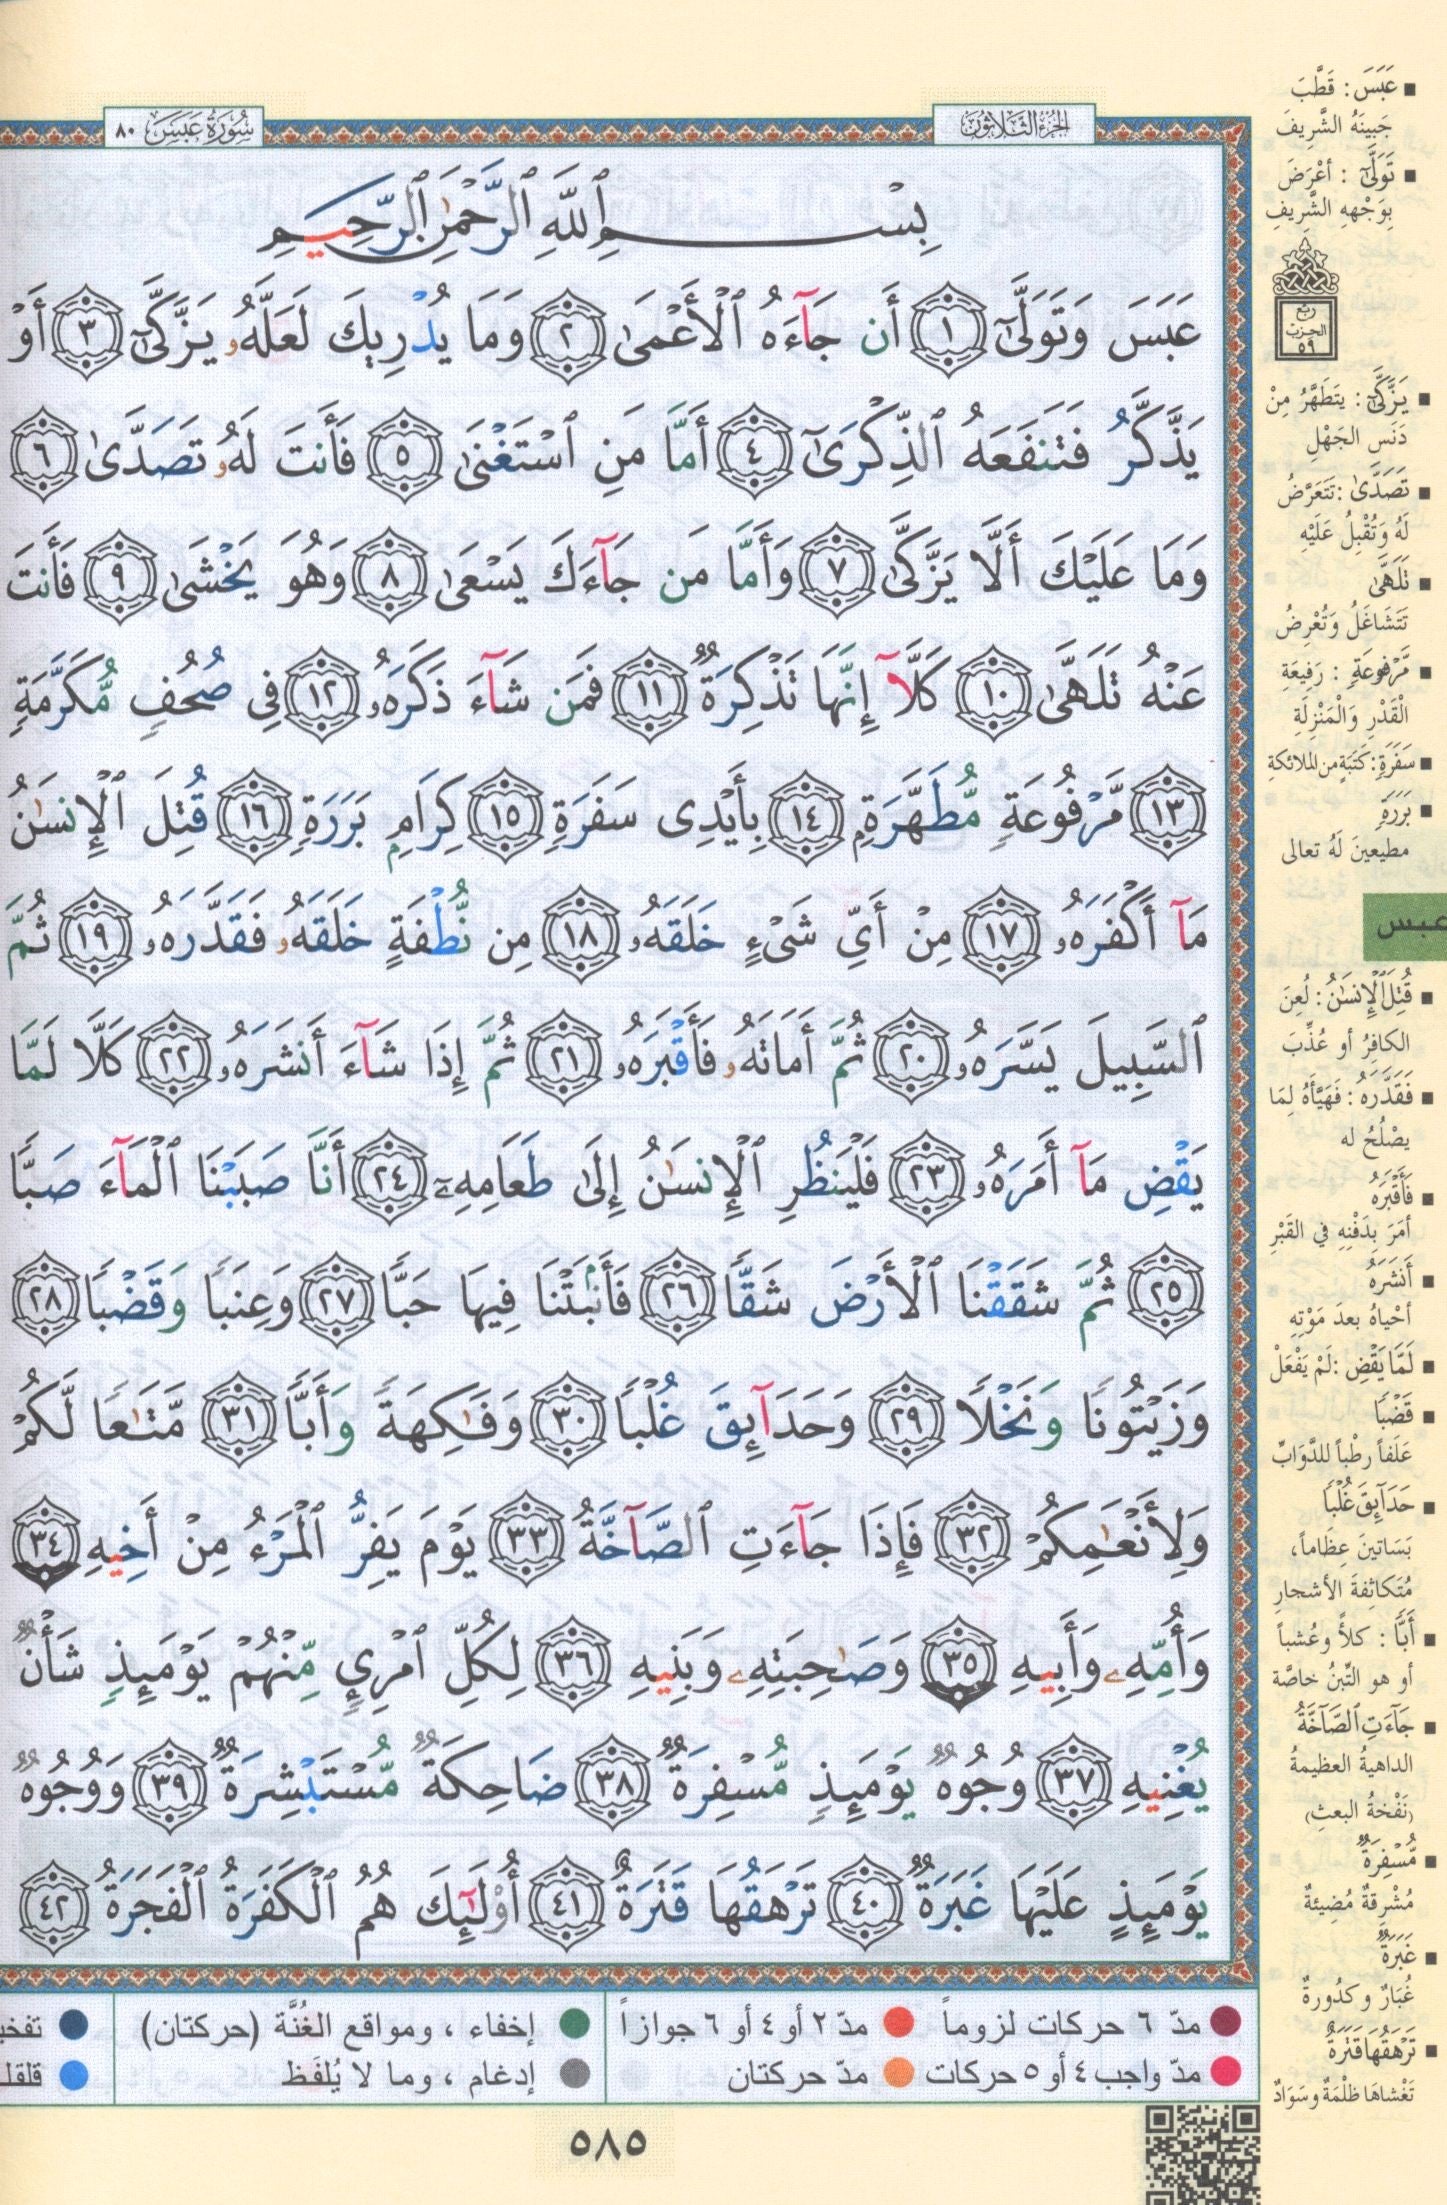 الجزء الثلاثون
سورة عبس ٨٠
بِسْمِ ٱللَّهِ ٱلرَّحْمَٰنِ ٱلرَّحِيمِ
عَبَسَ وَتَوَلَّىٰٓ ١ أَن جَآءَهُ ٱلْأَعْمَىٰ ٢ وَمَا يُدْرِيكَ لَعَلَّهُۥ يَزَّكَّىٰٓ ٣ أَوْ
يَذَّكَّرُ فَتَنفَعَهُ ٱلذِّكْرَىٰٓ ٤ أَمَّا مَنِ ٱسْتَغْنَىٰ ٥ فَأَنتَ لَهُۥ تَصَدَّىٰ ٦
وَمَا عَلَيْكَ أَلَّا يَزَّكَّىٰ ٧ وَأَمَّا مَن جَآءَكَ يَسْعَىٰ ٨ وَهُوَ يَخْشَىٰ ٩ فَأَنتَ
عَنْهُ تَلَهَّىٰ ١٠ كَلَّآ إِنَّهَا تَذْكِرَةٌ ١١ فَمَن شَآءَ ذَكَرَهُۥ ١٢ فِى صُحُفٍ مُّكَرَّمَةٍ
١٣ مَّرْفُوعَةٍ مُّطَهَّرَةٍۭ ١٤ بِأَيْدِى سَفَرَةٍ ١٥ كِرَامٍۭ بَرَرَةٍ ١٦ قُتِلَ ٱلْإِنسَٰنُ
مَآ أَكْفَرَهُۥ ١٧ مِنْ أَىِّ شَىْءٍ خَلَقَهُۥ ١٨ مِن نُّطْفَةٍ خَلَقَهُۥ فَقَدَّرَهُۥ ١٩ ثُمَّ
ٱلسَّبِيلَ يَسَّرَهُۥ ٢٠ ثُمَّ أَمَاتَهُۥ فَأَقْبَرَهُۥ ٢١ ثُمَّ إِذَا شَآءَ أَنشَرَهُۥ ٢٢ كَلَّا لَمَّا
يَقْضِ مَآ أَمَرَهُۥ ٢٣ فَلْيَنظُرِ ٱلْإِنسَٰنُ إِلَىٰ طَعَامِهِۦٓ ٢٤ أَنَّا صَبَبْنَا ٱلْمَآءَ صَبًّا
٢٥ ثُمَّ شَقَقْنَا ٱلْأَرْضَ شَقًّا ٢٦ فَأَنۢبَتْنَا فِيهَا حَبًّا ٢٧ وَعِنَبًا وَقَضْبًا ٢٨
وَزَيْتُونًا وَنَخْلًا ٢٩ وَحَدَآئِقَ غُلْبًا ٣٠ وَفَٰكِهَةً وَأَبًّا ٣١ مَّتَٰعًا لَّكُمْ
وَلِأَنْعَٰمِكُمْ ٣٢ فَإِذَا جَآءَتِ ٱلصَّآخَّةُ ٣٣ يَوْمَ يَفِرُّ ٱلْمَرْءُ مِنْ أَخِيهِ ٣٤
وَأُمِّهِۦ وَأَبِيهِ ٣٥ وَصَٰحِبَتِهِۦ وَبَنِيهِ ٣٦ لِكُلِّ ٱمْرِئٍ مِّنْهُمْ يَوْمَئِذٍ شَأْنٌ
يُغْنِيهِ ٣٧ وُجُوهٌ يَوْمَئِذٍ مُّسْفِرَةٌ ٣٨ ضَاحِكَةٌ مُّسْتَبْشِرَةٌ ٣٩ وَوُجُوهٌ
يَوْمَئِذٍ عَلَيْهَا غَبَرَةٌ ٤٠ تَرْهَقُهَا قَتَرَةٌ ٤١ أُو۟لَٰٓئِكَ هُمُ ٱلْكَفَرَةُ ٱلْفَجَرَةُ ٤٢
عَبَسَ : قَطَّبَ
جَبِينَهُ الشَّرِيفَ
تَوَلَّىٰٓ : أعْرَضَ
بِوَجْهِهِ الشَّرِيفِ
ربع
الحزب
٥٩
يَزَّكَّىٰٓ : يَتَطَهَّرُ مِنْ
دَنَسِ الجَهْلِ
تَصَدَّىٰ : تَتَعَرَّضُ
لَهُ وَتُقْبِلُ عَلَيْهِ
تَلَهَّىٰ
تَتَشَاغَلُ وَتُعْرِضُ
مَّرْفُوعَةٍ : رَفِيعَةِ
الْقَدْرِ وَالْمَنْزِلَةِ
سَفَرَةٍ : كَتَبَةٍ من الملائكةِ
بَرَرَةٍ
مطيعينَ لَهُ تعالى
عبس
قُتِلَ ٱلْإِنسَٰنُ : لُعِنَ
الكافِرُ أو عُذِّبَ
فَقَدَّرَهُ : فَهَيَّأَهُ لِمَا
يصْلُحُ له
فَأَقْبَرَهُ
أمَرَ بِدَفْنِهِ في القَبْرِ
أَنشَرَهُ
أحْياهُ بعدَ مَوْتِهِ
لَمَّا يَقْضِ : لَمْ يَفْعَلْ
قَضْبًا
عَلَفاً رطْباً للدَّوَابِّ
حَدَآئِقَ غُلْبًا
بَسَاتينَ عِظَاماً،
مُتَكاثِفةَ الأشجارِ
أَبًّا : كلأً وعُشباً
أو هو التِّبنُ خاصَّة
جَآءَتِ ٱلصَّآخَّةُ
الداهيةُ العظيمةُ
(نَفْخةُ البعثِ)
مُّسْفِرَةٌ
مُشْرِقةٌ مُضِيئةٌ
غَبَرَةٌ
غُبَارٌ وكُدُورةٌ
تَرْهَقُهَا قَتَرَةٌ
تَغْشاهَا ظلْمَةٌ وسَوَادٌ
مدّ ٦ حركات لزوماً مدّ ٢ أو ٤ أو ٦ جوازاً إخفاء ، ومواقع الغُنَّة (حركتان)
مدّ واجب ٤ أو ٥ حركات مدّ حركتان إدغام ، وما لا يُلفَظ
٥٨٥